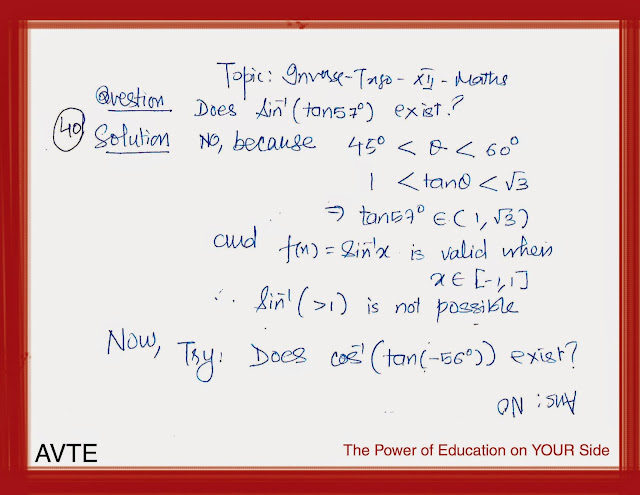 Topic: Inverse-Trigo-XII-Maths
Question Does Sin⁻¹(tan57°) exist?
40 Solution No, because 45° < θ < 60°
1 < tanθ < √3
⇒ tan57° ∈ (1, √3)
and f(x) = Sin⁻¹x is valid when
x ∈ [-1,1]
∴ Sin⁻¹(>1) is not possible
Now, Try: Does cos⁻¹(tan(-56°)) exist?
Ans: NO
AVTE
The Power of Education on YOUR Side